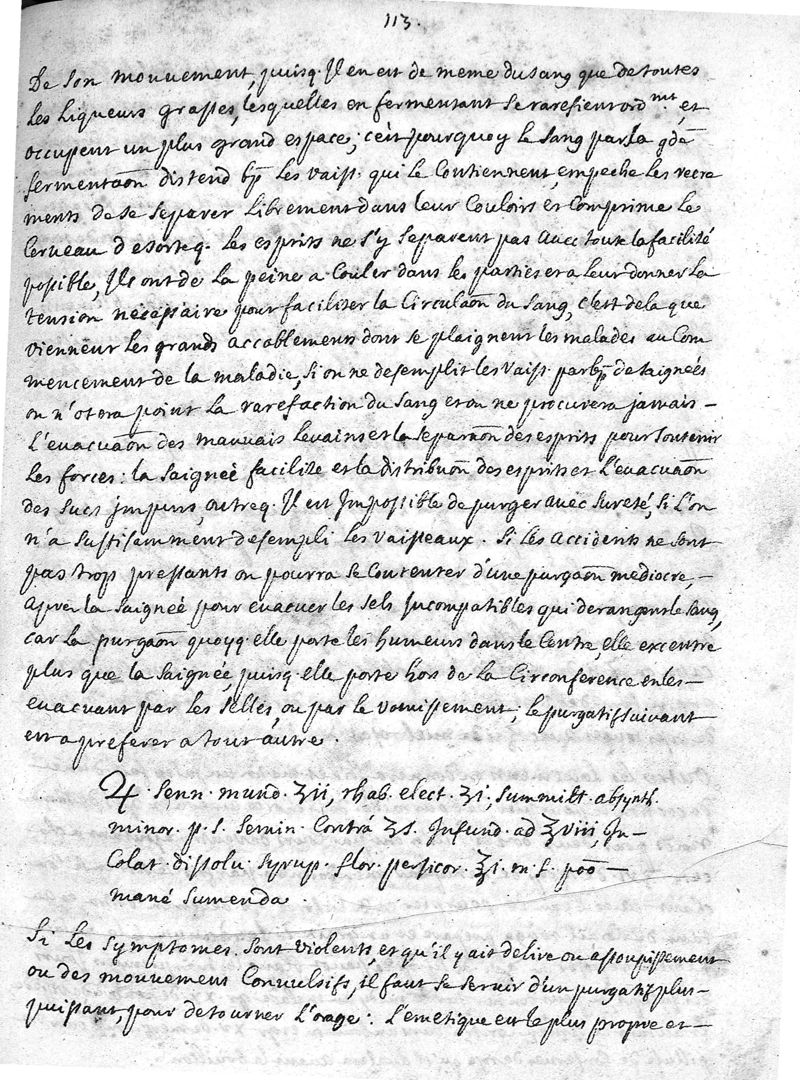 113.
De son mouvement, puisq. Il en est de meme du sang que de toutes
les Liqueurs grasses, lesquelles en fermentant se rarefient ord.mt, et
occupent un plus grand espace; c'est pourquoy le sang par sa gde
fermentaōn distend bp les vaiss. qui le Contiennent, empeche les recre
ments de se separer Librement dans leur Couloirs et Comprime le
Cerveau de sorteq. les esprits ne s'y separent pas avec toute la facilité
possible, Ils ont de la peine a Couler dans les parties et a leur donner la
tension necessaire pour faciliter la Circulaōn du sang, c'est de la que
viennent les grands accablements dont se plaignent les malades au Com
mencement de la maladie, si on ne desemplit les vaiss. par bp de saignées
on n'otera point la rarefaction du sang et on ne procurera jamais –
L'evacuaōn des mauvais levains et la separaōn des esprits pour soutenir
les forces: la saigneé facilite et la distribuōn des esprits et l'evacuaōn
des sucs jmpurs, outreq. Il est Impossible de purger avec sureté, si l'on
n'a suffisamment desempli les vaisseaux. Si les accidents ne sont
pas trop pressants on pourra se Contenter d'une purgaōn mediocre, –
apres la saigneé pour evacuer les sels Incompatibles qui derangent le sang,
car la purgaōn quoyq. elle porte les humeurs dans le Centre, elle excentre
plus que la saigneé, puisq. elle porte hors de la Circonference en les –
evacuant par les selles, ou par le vomissement; le purgatif suivant
est a preferer a tout autre.
♃. Senn. mund. ʒii, rhab. elect. ʒi, summitt. absynth.
minor. p. s. Semin. Contrá ʒs. Infund. ad ℥viii, In –
Colat. dissolu. syrup. flor. persicor. ℥i. m. f. poō –
mané sumenda.
Si les symptomes sont violents, et qu'il y ait delire ou assoupissement
ou des mouvement Convulsifs, il faut se servir d'un purgatif plus –
puissant, pour detourner L'orage: L'emetique est le plus propre et –